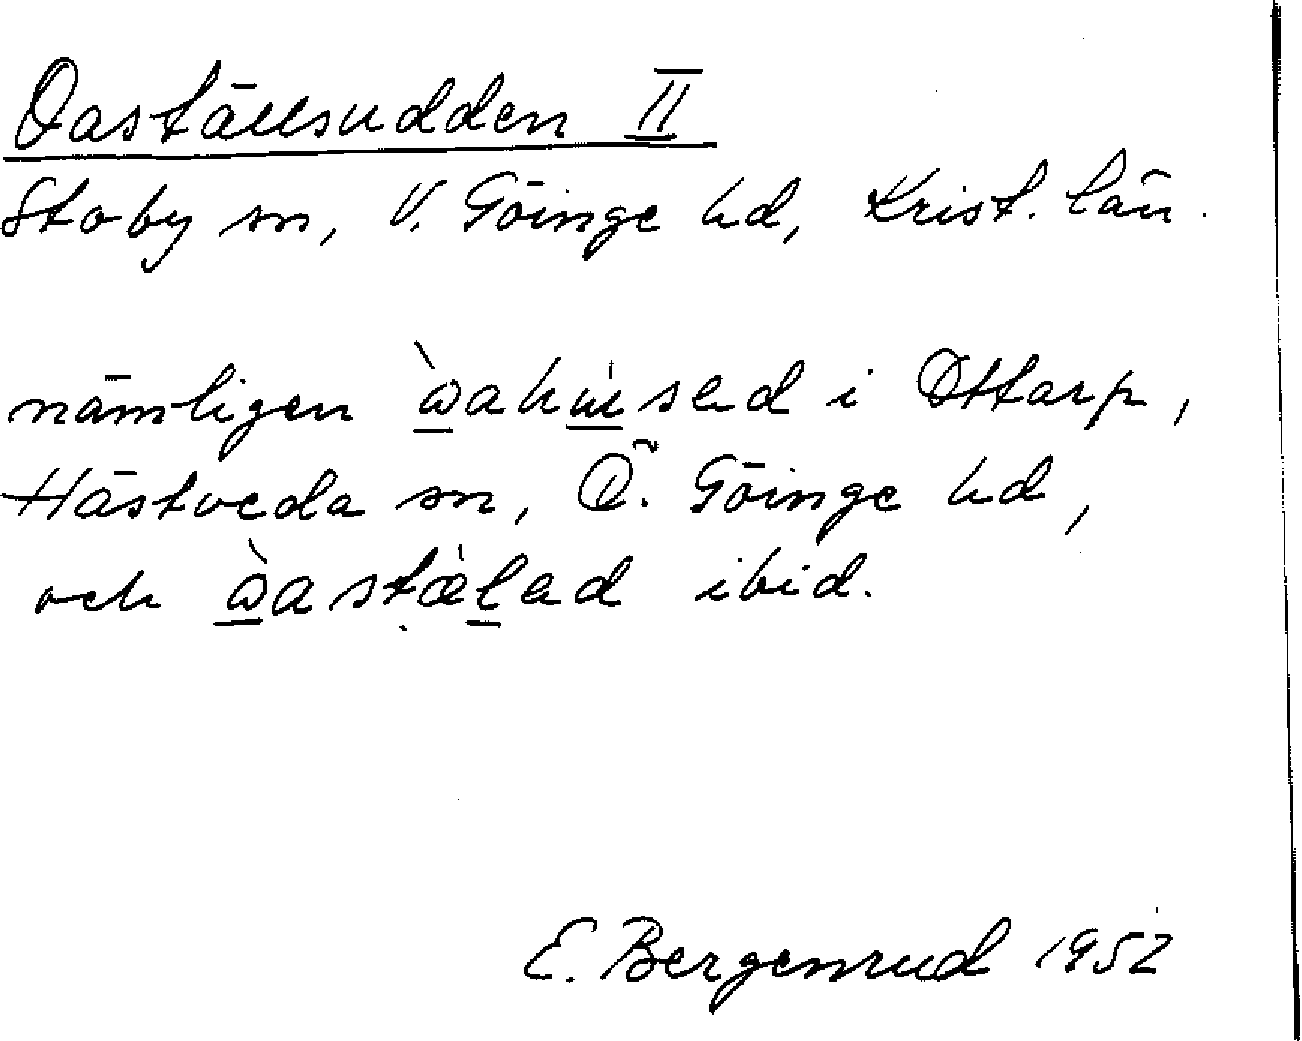 Oaställsudden II
Stoby sn, V. Göinge hd, Krist. län.
nämligen i Ottarp,
Hästveda sn, Ö. Göinge hd,
och ibid.
E. Bergenrud 1952